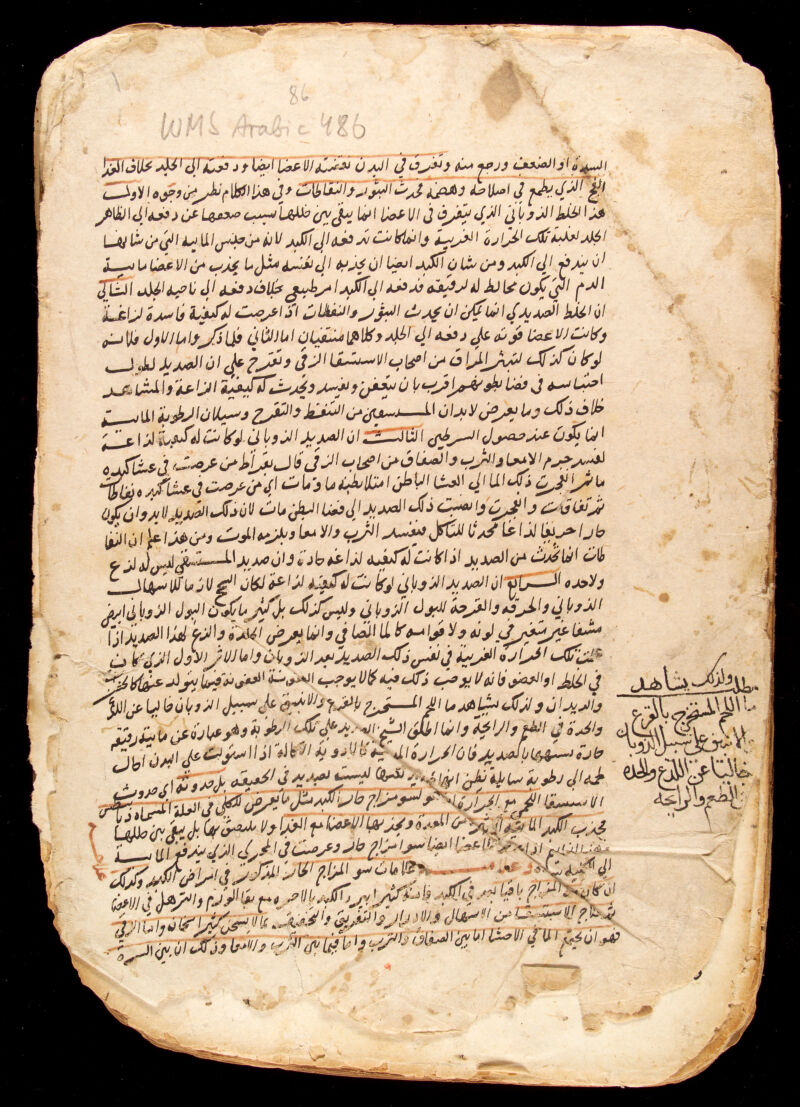 86
WMS Arabic 486
السدة او الضعف ورجع منه وتفرق في البدن نفضته الاعضا ايضا ودفعته الى الجلد بخلاف الغذا
الفج الذي يطمع في اصلاحه وهضمه فحدث البثور والنفاطات وفي هذا الكلام نظر من وجوه الاول
هذا الخلط الذوباني الذي يتفرق في الاعضا انما يبقى بين خللها بسبب ضعفها عن دفعه الى الظاهر
الجلد لغلبة تلك الحرارة الغريبة وانما كانت تدفعه الى الكبد لانه من جنس المائية التي من شانها
ان يندفع الى الكبد ومن شان الكبد ايضا ان يجذبه الى نفسه مثل ما يجذب من الاعضا مائية
الدم التي يكون مخالط له لترقيقه فدفعه الى الكبد امر طبيعي بخلاف دفعه الى ناحية الجلد الثاني
ان الخلط الصديدي انما يمكن ان يحدث البثور والنفطات اذا عرضت له كيفية فاسدة لذاعة
وكانت الاعضا قوية على دفعه الى الجلد وكلاهما منتفيان اما الثاني فلما ذكر واما الاول فلانه
لو كان كذلك لتبثر المراق من اصحاب الاستسقا الزقي وتقرح على ان الصديد لطول
احتباسه في فضا بطونهم اقرب بان يتعفن ويفسد ويحدث له كيفية لذاعة والمشاهد
خلاف ذلك وما يعرض لابدان من التنفط والتقرح وسيلان الرطوبة المائية
انما يكون عند حصول الثالث ان الصديد الذوباني لو كانت له كيفية لذاعة
لفسد جرم الامعا والثرب والصفاق من اصحاب الزقي قال بقراط من عرضت في غشا كبده
ماثم انفجرت ذلك الما الى الغشا الباطن امتلا بطنه ما ومات اي من عرضت في غشا كبده نفاطات
ثم تفاقات وانفجرت وانصبت ذلك الصديد الى فضا البطن مات لان ذلك الصديد لابد وان يكون
حارا حريفا لذاعا محدثا للتاكل فيفسد الثرب والامعا ويلزمه الموت ومن هذا علم ان النفا
طات انما تحدث من الصديد اذا كانت له كيفية لذاعة حادة وان صديد المستسقي ليس له لذع
ولا حده الرابع ان الصديد الذوباني لو كانت له كيفية لذاعة لكان السحج لازما للاسهال
الذوباني والحرقة والقرحة للبول الذوباني وليس كذلك بل كثير ما يكون البول الذوباني ابيض
مشفا غير متغير في لونه ولا قوامه كالما الصافي وانما يعرض الحدة واللذع لهذا الصديد اذا
عملت تلك الحرارة الغريبة في نفس ذلك الصديد بعد الذوبان واما الاثر الاول الذي كانت
في الخلط او العضو فانه لا يوجب ذلك فيه كما لا يوجب العفونة العفونة فيما يتولد عنها كالحيات
والديدان ولذلك يشاهد ما اللحم المستخرج بالقرع والانبيق على سبيل الذوبان خاليا عن اللذع
والحدة في الطعم والرائحة وانما اطلق الشيخ الصديد على تلك الرطوبة وهو عبارة عن مائية رقيقة
حارة تشبيها بالصديد فان الحرارة كالادوية الاكالة اذا استولت على البدن احال
طمه الى رطوبة سايلة يظن انها ليست بصديد في الحقيقة بل حدوثه اي حدوث
الاستسقا اللحمي مع الحرارة لسو مزاج حار الكبد مثل ما يعرض للكلى في العلة المسماه ديابيطس
فيجذب الكبد المائية من المعدة ويجذبها الاعضا مع الغذا ولا يلتصق بها بل يبقى بين خللها
الاعضا ايضا سوا مزاج حار وعرضت في المجرى الذي يندفع المائية
الى الكلية وعلامات سو المزاج الحار المذكور في امراض الكبد وكذلك
ان كان المزاج باقيا بعد في الكبد فانه كثير الكبد بالاخره مع بقا الورم والترهل في الاعضا
علاج الاستسقا من الاسهال والادرار والتعريق والتجفيف بما لا يسخن كثير اسخان واما الزقي
فهو ان يجتمع الما في الاحشا اما بين الصفاق والثرب واما فيما بين الثرب والامعا وذلك ان بين السرة
مطلب ولذلك يشاهد
ما اللحم المستخرج بالقرع
والانبيق على سبيل الذوبان
خاليا عن اللذع والحدة
في الطعم والرائحة